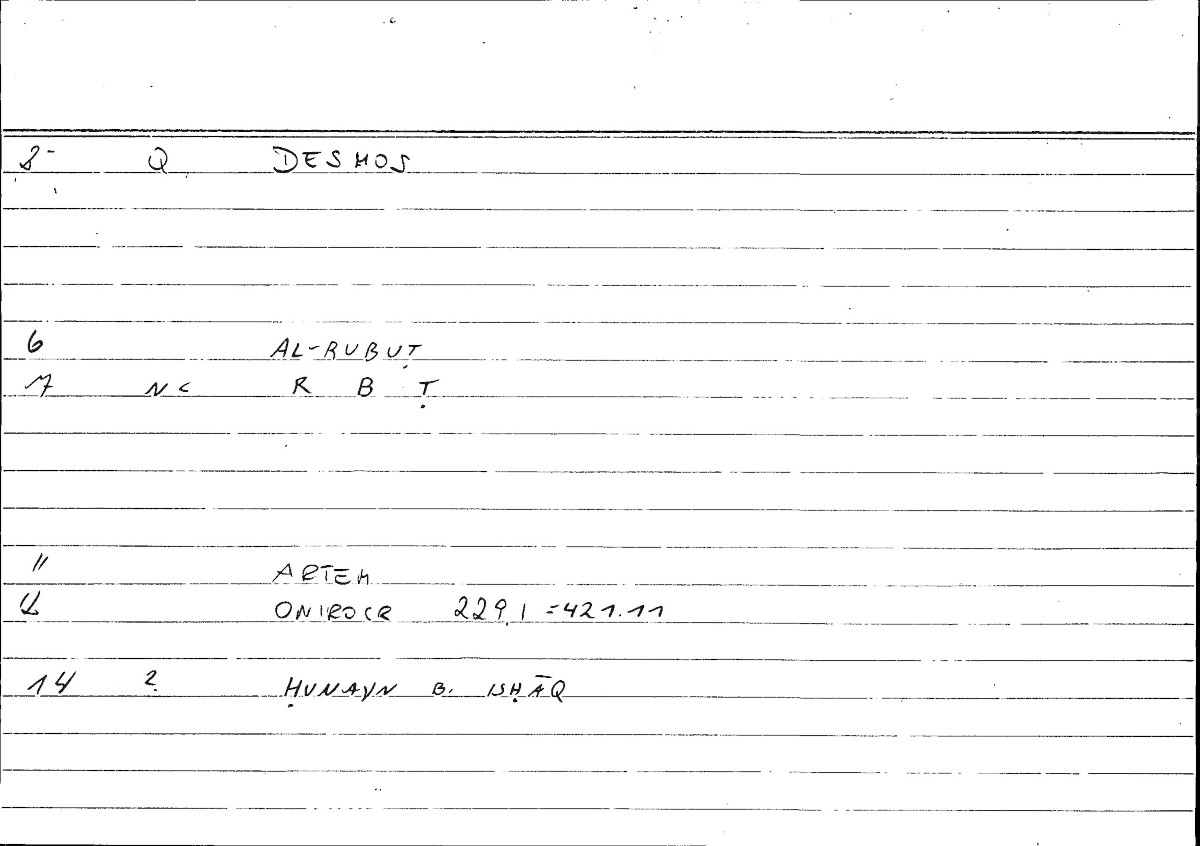 Q DESMOS
6 AL-RUBUṬ
7 NC R B Ṭ
11 ARTEM
12 ONIROCR 229,1 =421.11
14 2 ḤUNAYN B. ISḤĀQ